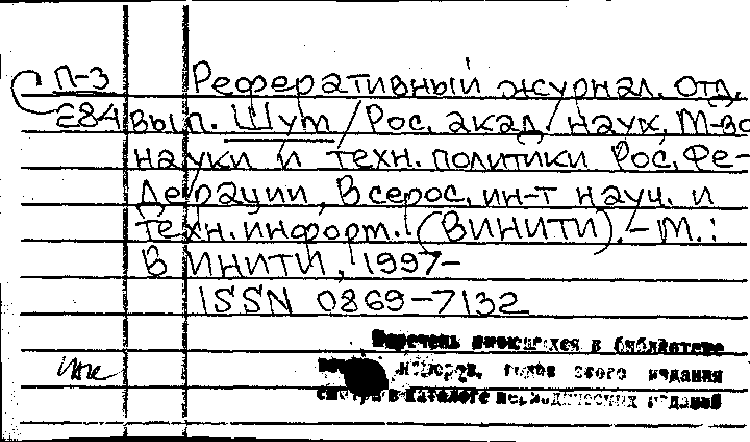 П-3 Реферативный журнал. Отд.
Е84 вып. Шум / Рос. акад. наук, М-во
науки и техн. политики Рос. Фе-
дерации, Всерос. ин-т науч. и
техн. информ. (ВИНИТИ). - М.:
ВИНИТИ, 1997-
ISSN 0869-7132
Перечень имеющихся в библиотеке
номеров, годов этого издания
смотри в каталоге периодических изданий